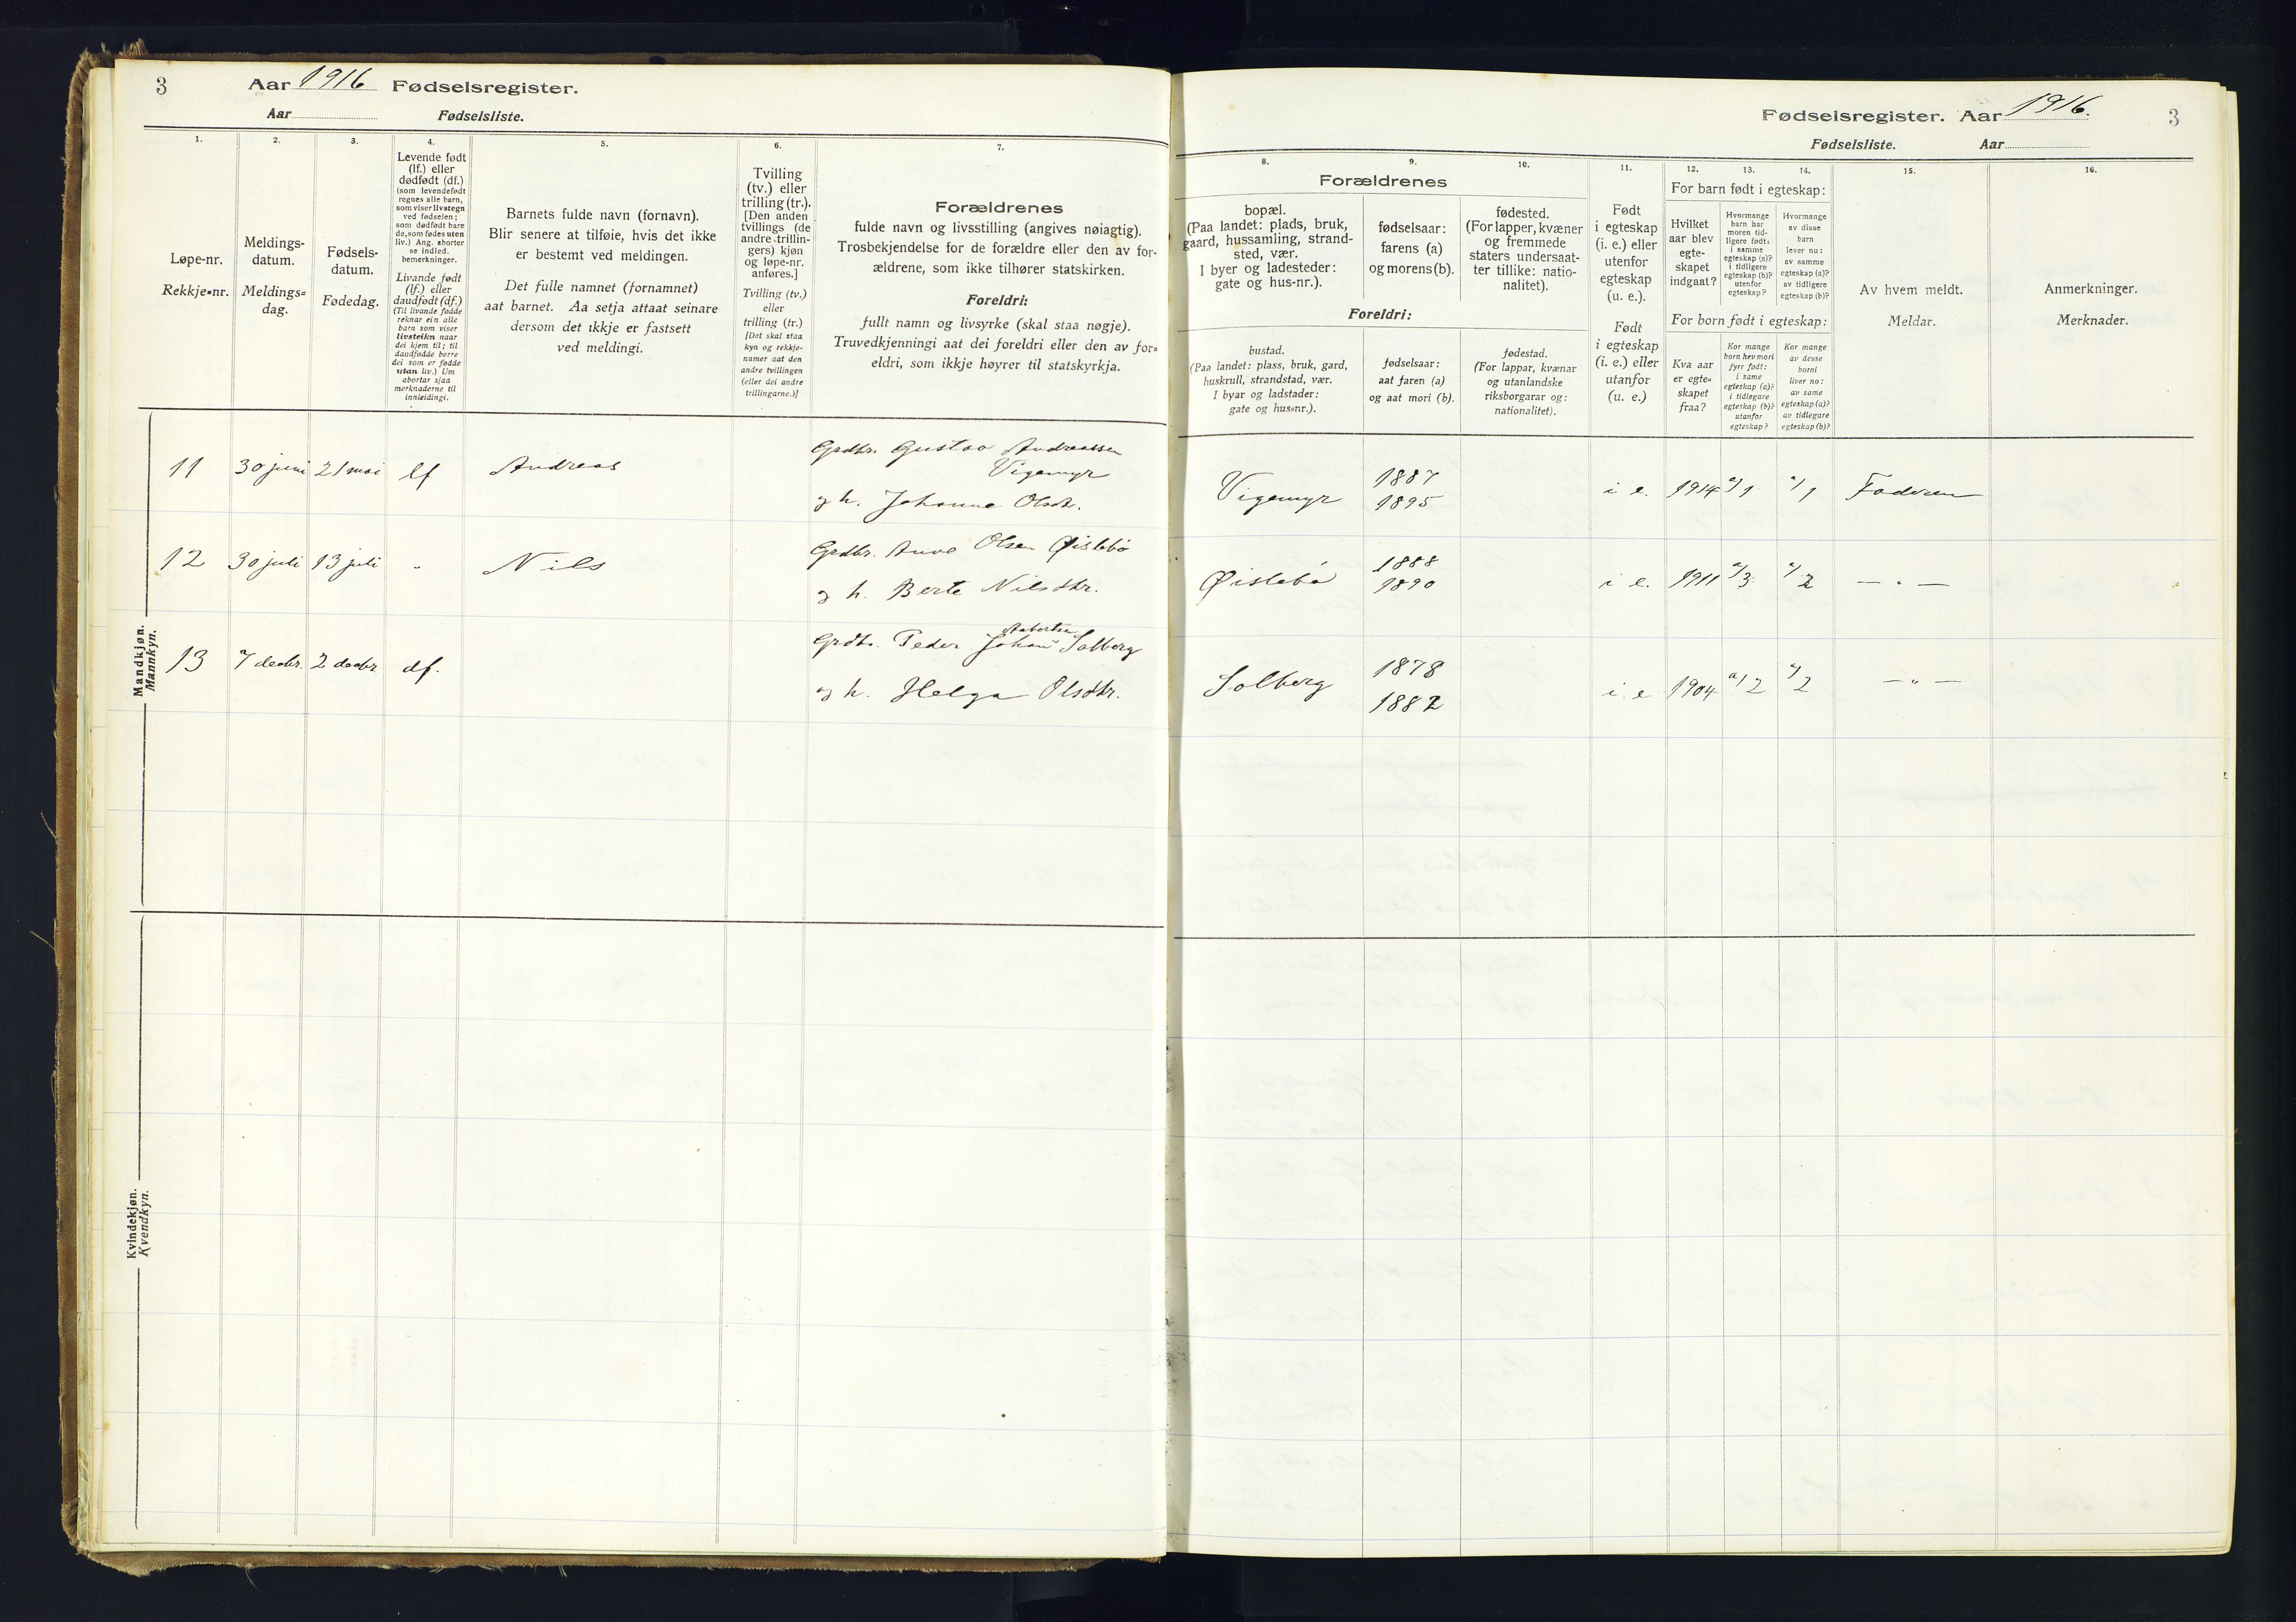 3
Aar 1916 Fødselsregister.
Aar Fødselsliste.
1.
2.
3.
4.
5.
6.
7.
Løpe-nr.
Rekkje-nr.
Meldings-
datum.
Meldings-
dag.
Fødsels-
datum.
Fødedag.
Levende født
(lf.) eller
dødfødt (df.)
(som levendefødt
regnes alle barn,
som viser livstegn
ved fødselen;
som dødfødt bare
de, som fødes uten
liv.) Ang. aborter
se indled.
bemerkninger.
Livande født
(lf.) eller
daudfødt (df.)
(Til livande fødde
reknar ein alle
barn som viser
livsteikn naar
dei kjem til; til
daudfødde berre
dei som er fødde
utan liv.) Um
abortar sjaa
merknaderne til
innleidingi.
Barnets fulde navn (fornavn).
Blir senere at tilføie, hvis det ikke
er bestemt ved meldingen.
Det fulle namnet (fornamnet)
aat barnet. Aa setja attaat seinare
dersom det ikkje er fastsett
ved meldingi.
Tvilling
(tv.) eller
trilling (tr.).
[Den anden
tvillings (de
andre trillin-
gers) kjøn
og løpe-nr.
anføres.]
Tvilling (tv.)
eller
trilling (tr.)
[Det skal staa
kyn og rekkje-
numer aat den
andre tvillingen
(eller dei andre
trillingarne.)]
Forældrenes
fulde navn og livsstilling (angives nøiagtig).
Trosbekjendelse for de forældre eller den av for-
ældrene, som ikke tilhører statskirken.
Foreldri:
fullt namn og livsyrke (skal staa nøgje).
Truvedkjenningi aat dei foreldri eller den av for-
eldri, som ikkje høyrer til statskyrkja.
Mandkjøn.
Mannkyn.
11 30 juni 21 mai lf Andreas Grdbr. Gustav Andreassen
Vigemyr
og h. Johanne Olsdtr.
12 30 juli 13 juli " Nils Grdbr. Olsen Øislebø
og h. Berte Nilsdtr.
13 7 decbr. 2 decbr df. Grdbr. Peder Johan Solberg
og h. Helga Olsdtr.
Kvindekjøn.
Kvendkyn.
Fødselsregister. Aar 1916. 3
Fødselsliste. Aar
8.
9.
10.
11.
12.
13.
14.
15.
16.
Forældrenes
bopæl.
(Paa landet: plads, bruk,
gaard, hussamling, strand-
sted, vær.
I byer og ladesteder:
gate og hus-nr.).
fødselsaar:
farens (a)
og morens (b).
fødested.
(For lapper, kvæner
og fremmede
staters undersaat-
ter tillike: natio-
nalitet).
Foreldri:
bustad.
(Paa landet: plass, bruk, gard,
huskrull, strandstad, vær.
I byar og ladstader:
gate og hus-nr.).
fødselsaar:
aat faren (a)
og aat mori (b).
fødestad.
(For lappar, kvænar
og utanlandske
riksborgarar og:
nationalitet).
Født
i egteskap
(i. e.) eller
utenfor
egteskap
(u. e.).
Født
i egteskap
(i. e.) eller
utanfor
(u. e.)
For barn født i egteskap:
Hvilket
aar blev
egte-
skapet
indgaat?
Hvormange
barn har
moren tid-
ligere født:
i samme
egteskap (a)?
i tidligere
egteskap (b)?
utenfor
egteskap?
Hvormange
av disse
barn
lever nu:
av samme
egteskap (a)?
av tidligere
egteskap (b)?
For born født i egteskap:
Kva aar
er egte-
skapet
fraa?
Kor mange
born hev mori
fyrr født:
i same
egteskap (a)?
i tidlegare
egteskap (b)?
utanfor
egteskap?
Kor mange
av desse
borni
liver no:
av same
egteskap (a)?
av tidlegare
egteskap (b)?
Av hvem meldt.
Meldar.
Anmerkninger.
Merknader.
Vigemyr 1887
1895 i e. 1914 a/1 a/1 Faderen
Øislebø 1888
1890 i e. 1911 a/3 a/2 — " —
Solberg 1878
1882 i. e 1904 a/2 a/2 — " —